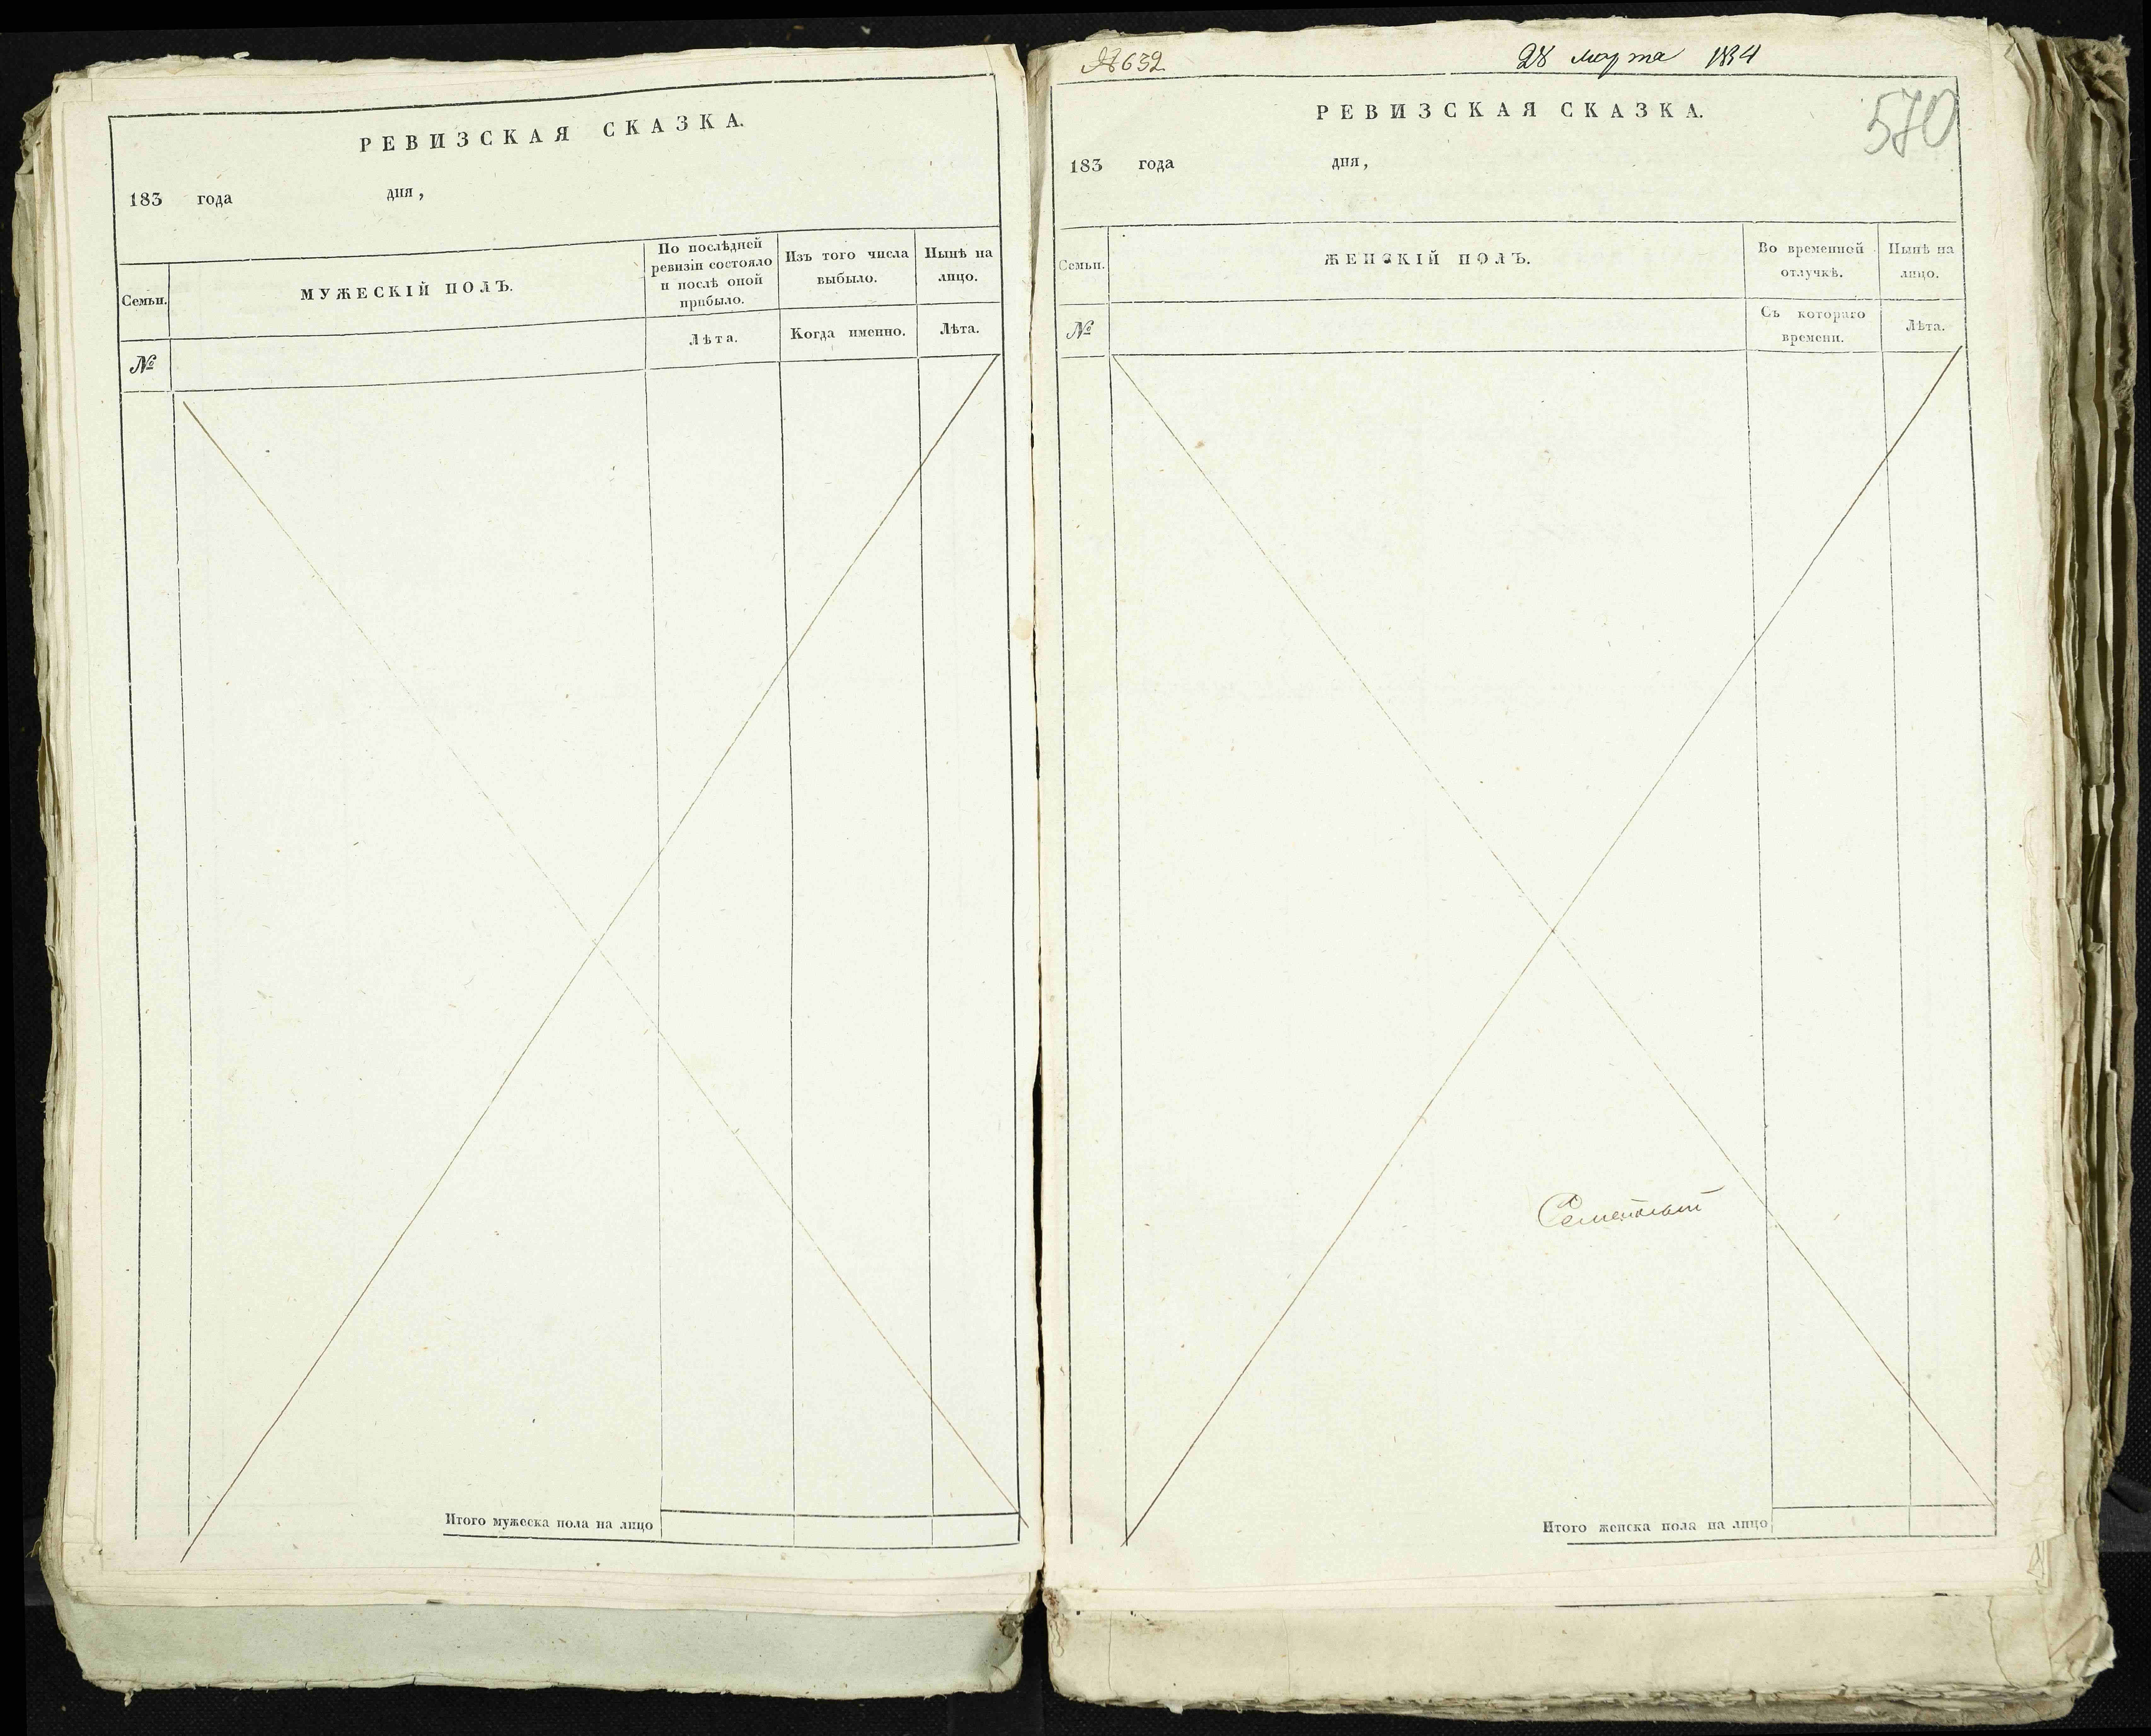 РЕВИЗСКАЯ СКАЗКА.
183 года дня,
Семьи.
МУЖЕСКІЙ ПОЛЪ.
По послѣдней
ревизіи состояло
и послѣ оной
прибыло.
Изъ того числа
выбыло.
Нынѣ на
лицо.
№
Лѣта.
Когда именно.
Лѣта.
Итого мужеска пола на лицо
№ 632
28 марта 1834
570
РЕВИЗСКАЯ СКАЗКА.
183 года дня,
Семьи.
ЖЕНСКІЙ ПОЛЪ.
Во временной
отлучкѣ.
Нынѣ на
лицо.
№
Съ котораго
времени.
Лѣта.
Итого женска пола на лицо